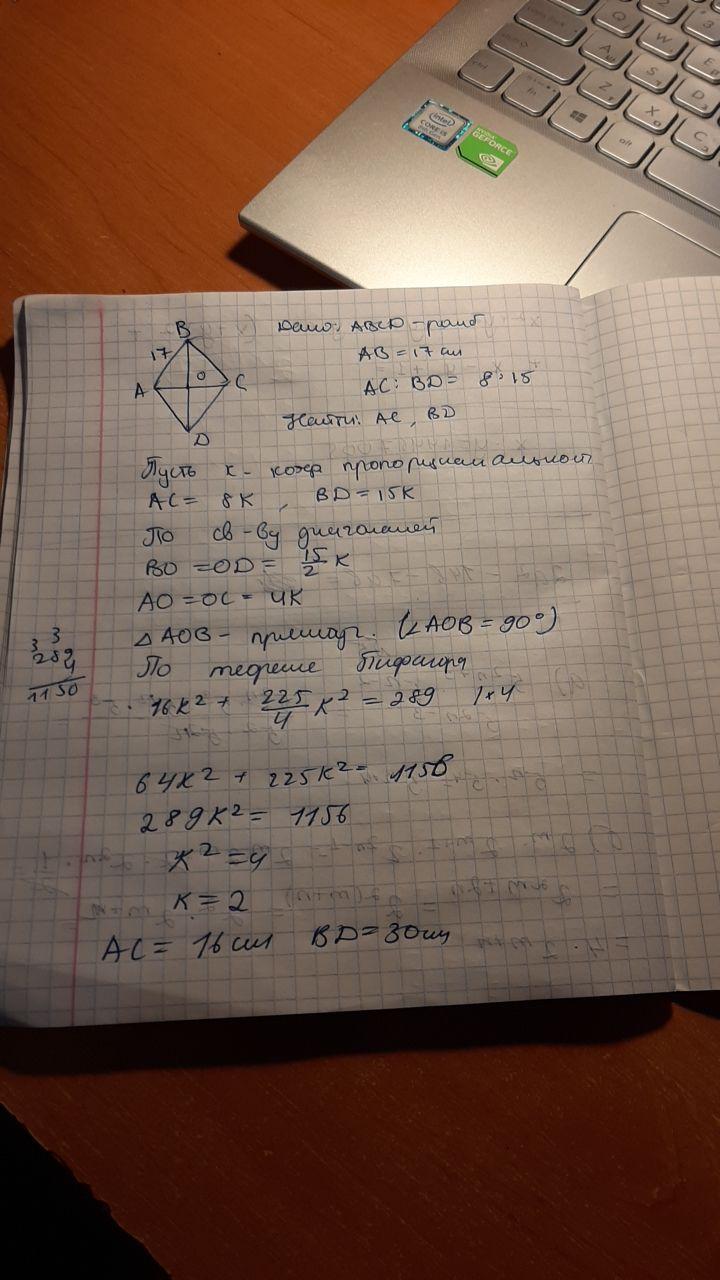 Q
W
A
S
Z
X
D
C
E
2
3
ctrl
fn
alt
intel
CORE i5
NVIDIA
GEFORCE
B
17
O
A
C
D
Дано: ABCD - ромб
AB = 17 см
AC : BD = 8 : 15
Найти: AC, BD
Пусть к - коэф пропорциональност
AC = 8K, BD = 15K
По св-ву диагоналей
BO = OD = 15/2 K
AO = OC = 4K
△ AOB - прямоуг. (∠AOB = 90°)
По теореме Пифагора
3 3
289
4
1150
16K² + 225/4 K² = 289 | × 4
64K² + 225K² = 1156
289K² = 1156
K² = 4
K = 2
AC = 16 см BD = 30 см